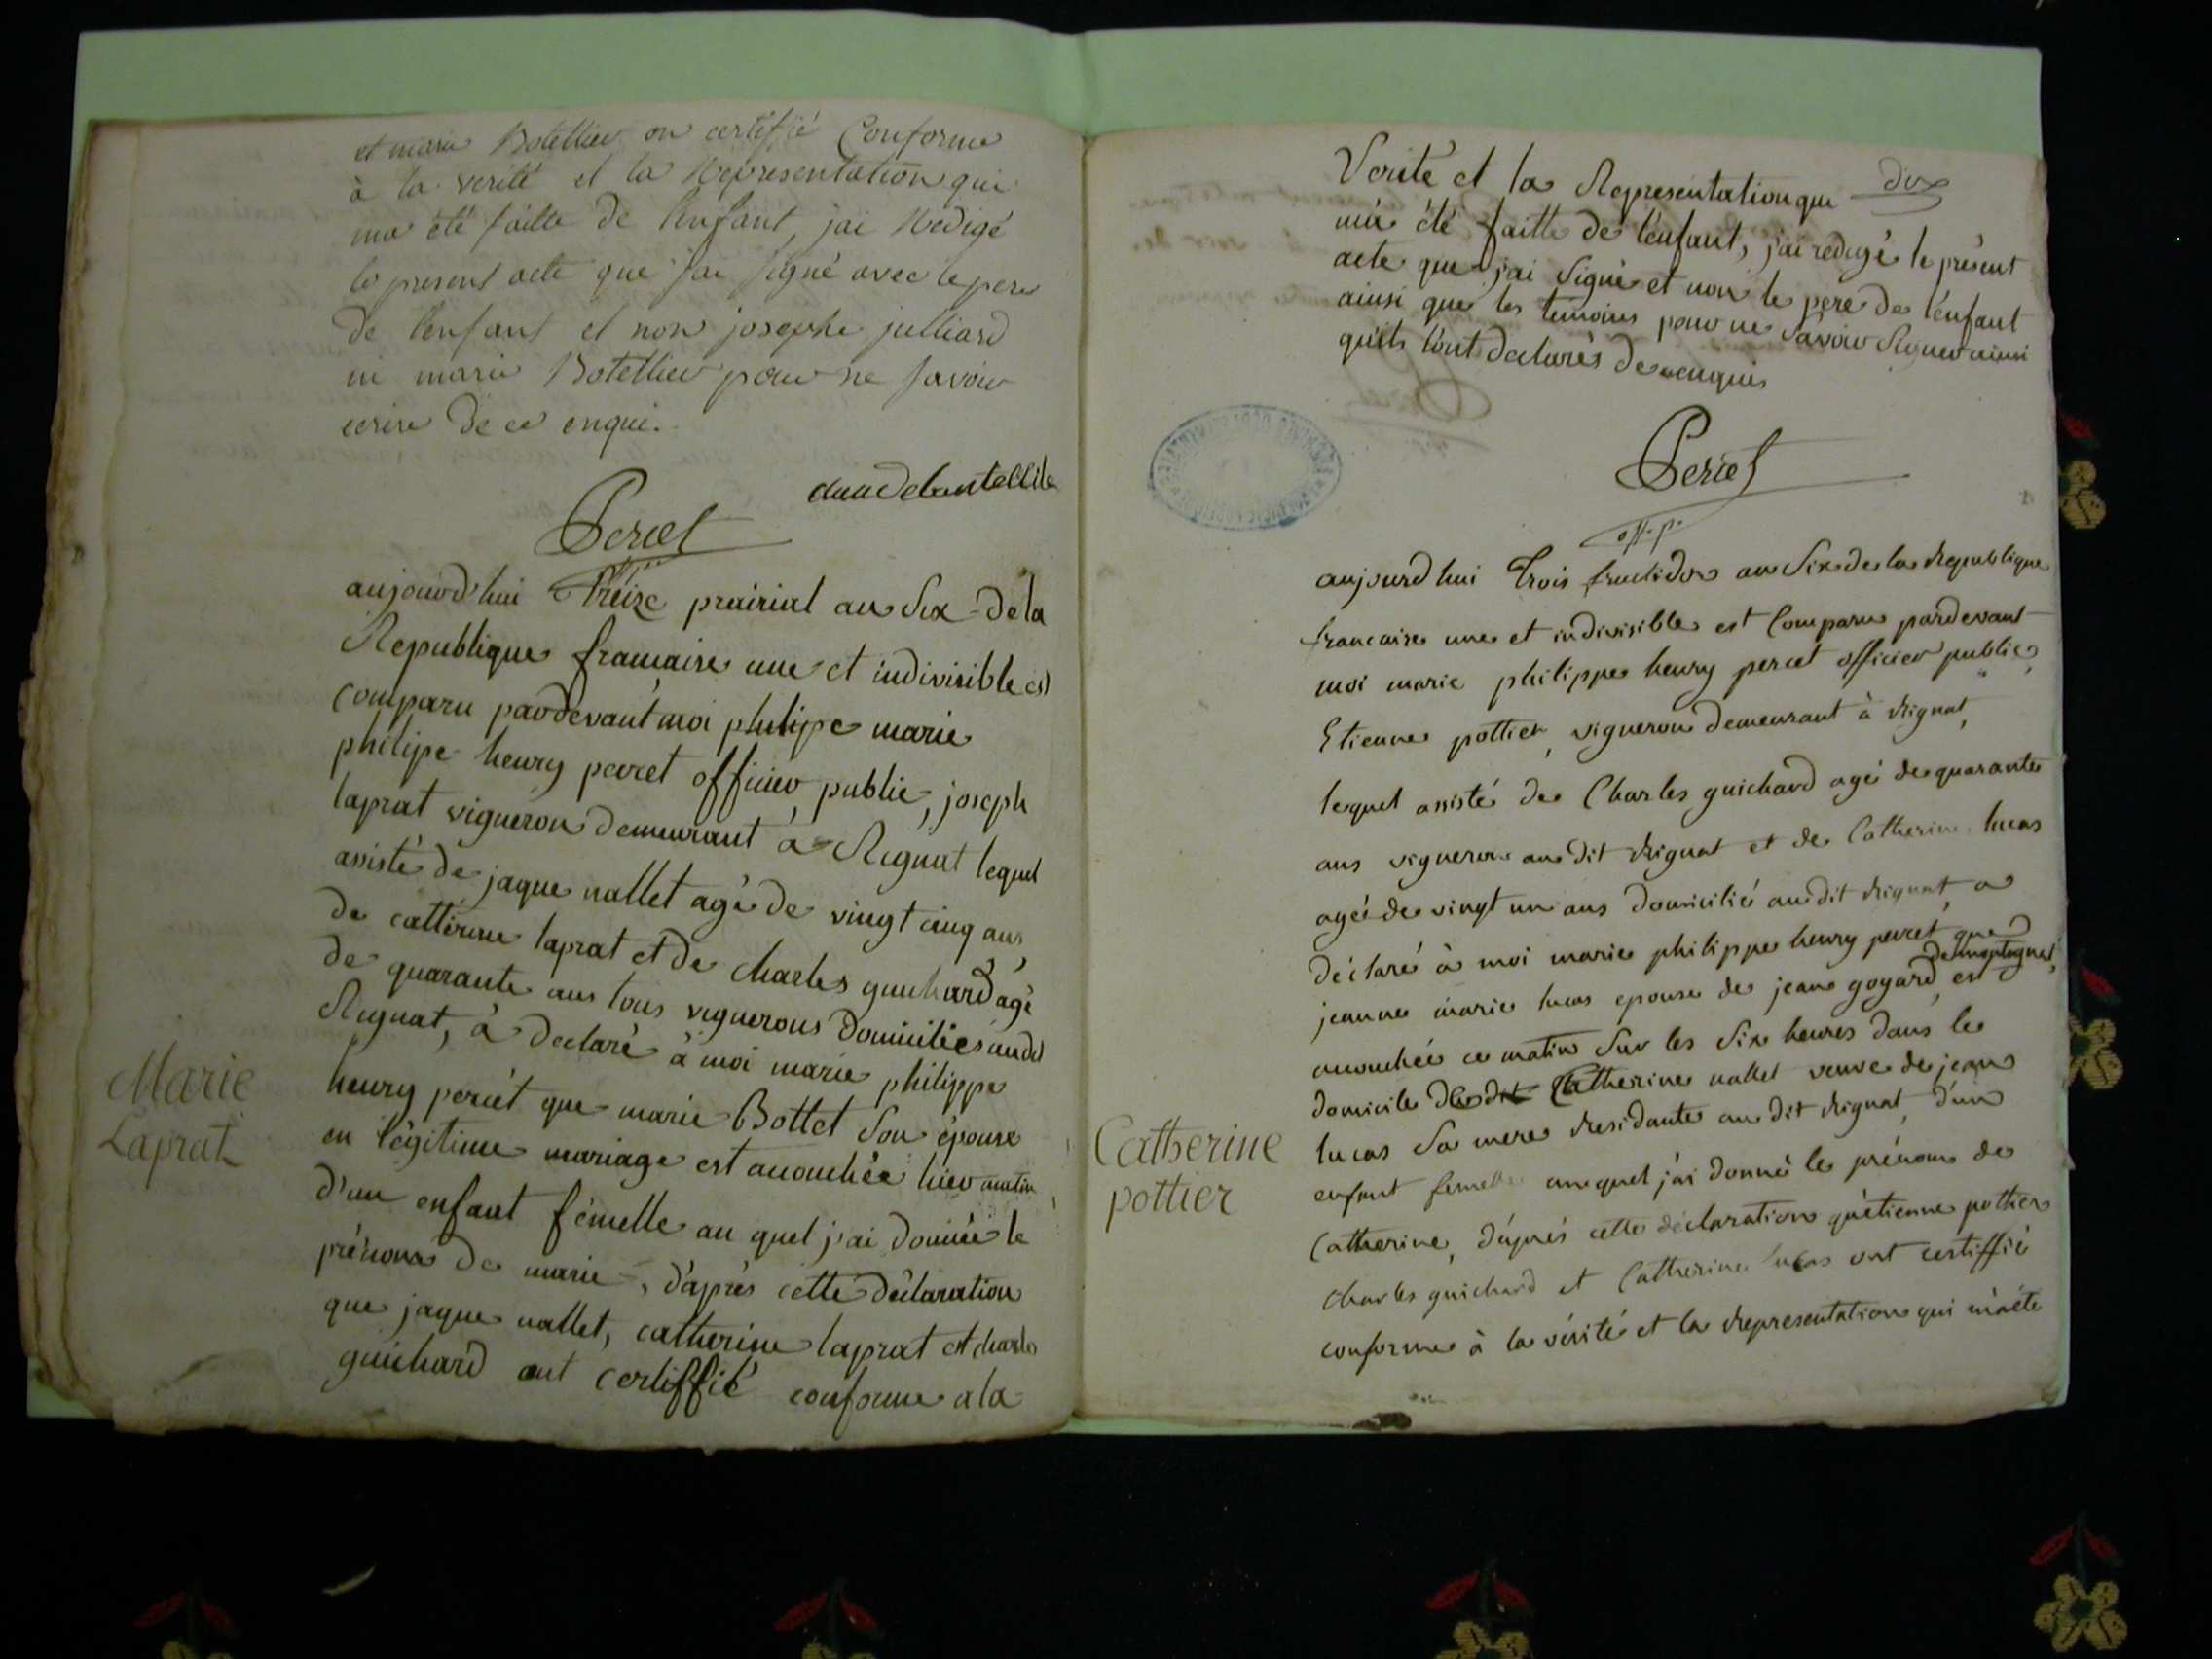 et marie Botellier on certifié Conforme
à la verité et la Representation qui
ma été faitte de l'enfant, jai Redigé
le present acte que jai signé avec le pere
de l'enfant et non josephe julliard
ni marie Botellier pour ne savoir
ecrire de ce enqui.
Perret
aujourd'hui Treize prairial an Six de la
Republique française une et indivisible est
comparu pardevant moi philippe marie
philipe henry perret officier public, joseph
laprat vigneron demeurant à Rignat lequel
assisté de jaque nallet agé de vingt cinq ans,
de catterine laprat et de charles guichard agé
de quarante ans tous vignerons domiciliés audit
Rignat, à declaré à moi marie philippe
henry perret que marie Bottet son épouse
en légitime mariage est accouchée hier matin
d'un enfant fémelle au quel j'ai donnée le
prénom de marie, d'après cette déclaration
que jaque nallet, catherine laprat et charles
guichard ont certiffié conforme a la
Marie
Laprat
dix
Verité et la Representation que
m'a été faitte de l'enfant, j'ai redigé le présent
acte que j'ai signé et non le pere de l'enfant
ainsi que les temoins pour ne savoir signer ainsi
qu'ils l'ont declarés de ce enquis
Perret
off. p.
aujourd hui Trois fructidor an Six de la Republique
francaise une et indivisible est Comparu pardevant
moi marie philippe henry perret officier public,
Etienne pottier, vigneron demeurant à Rignat,
lequel assisté de Charles guichard agé de quarante
ans vigneron audit Rignat et de Catherine lucas
agée de vingt un ans domicilié audit Rignat, a
déclaré à moi marie philippe henry perret que
jeanne marie lucas epouse de jean goyard, est
accouchée ce matin sur les six heures dans le
domicile de Catherine nallet veuve de jean
lucas sa mere residante audit Rignat, d'un
enfant femelle auquel j'ai donné le prénom de
Catherine, d'après cette déclaration qu'etienne pottier
charles guichard et Catherine lucas ont certiffié
conforme à la vérité et la representation qui m'a été
Catherine
pottier